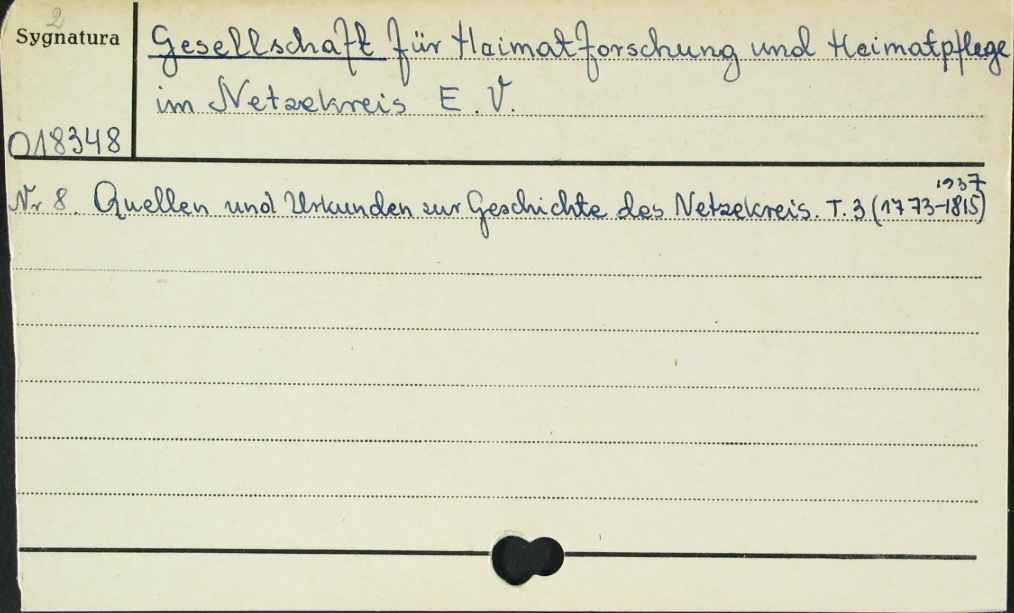 2
Sygnatura
Gesellschaft für Haimatforschung und Heimatpflege
im Netzekreis E.V.
018348
1937
Nr 8. Quellen und Urkunden zur Geschichte des Netzekreis. T. 3 (1773-1815)